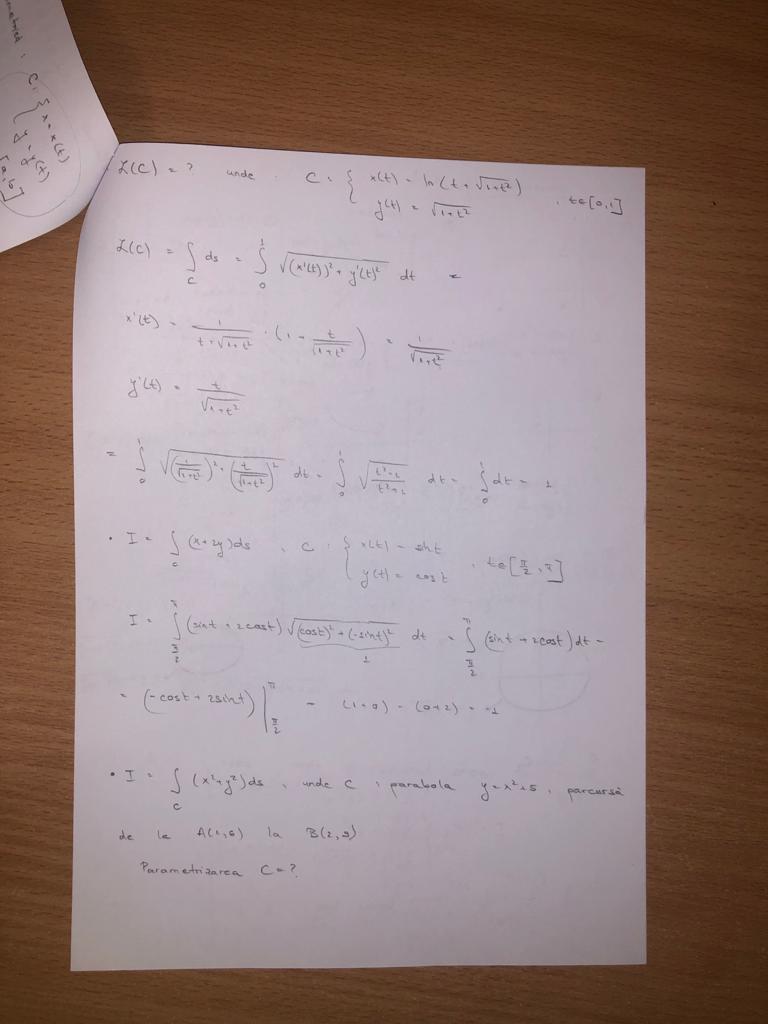 C: { x = x(t)
y = y(t)
[a,b]
L(C) = ? unde : C : { x(t) = ln(t + √(1+t²))
y(t) = √(1+t²) , t∈[0,1]
L(C) = ∫_C ds = ∫₀¹ √((x'(t))² + y'(t)²) dt =
x'(t) = 1/(t+√(1+t²)) · (1 + t/√(1+t²)) = 1/√(1+t²)
y'(t) = t/√(1+t²)
= ∫₀¹ √((1/√(1+t²))² + (t/√(1+t²))²) dt = ∫₀¹ √((t²+1)/(t²+1)) dt = ∫₀¹ dt = 1
• I = ∫_C (x+2y)ds , C : { x(t) = sint
y(t) = cost , t∈[π/2, π]
I = ∫_{π/2}^{π} (sint + 2cost) √((cost)² + (-sint)²) dt = ∫_{π/2}^{π} (sint + 2cost) dt =
1
= (-cost + 2sint) |_{π/2}^{π} = (1+0) - (0+2) = -1
• I = ∫_C (x²+y²)ds , unde C : parabola y=x²+5 , parcursă
de la A(1,6) la B(2,9)
Parametrizarea C = ?